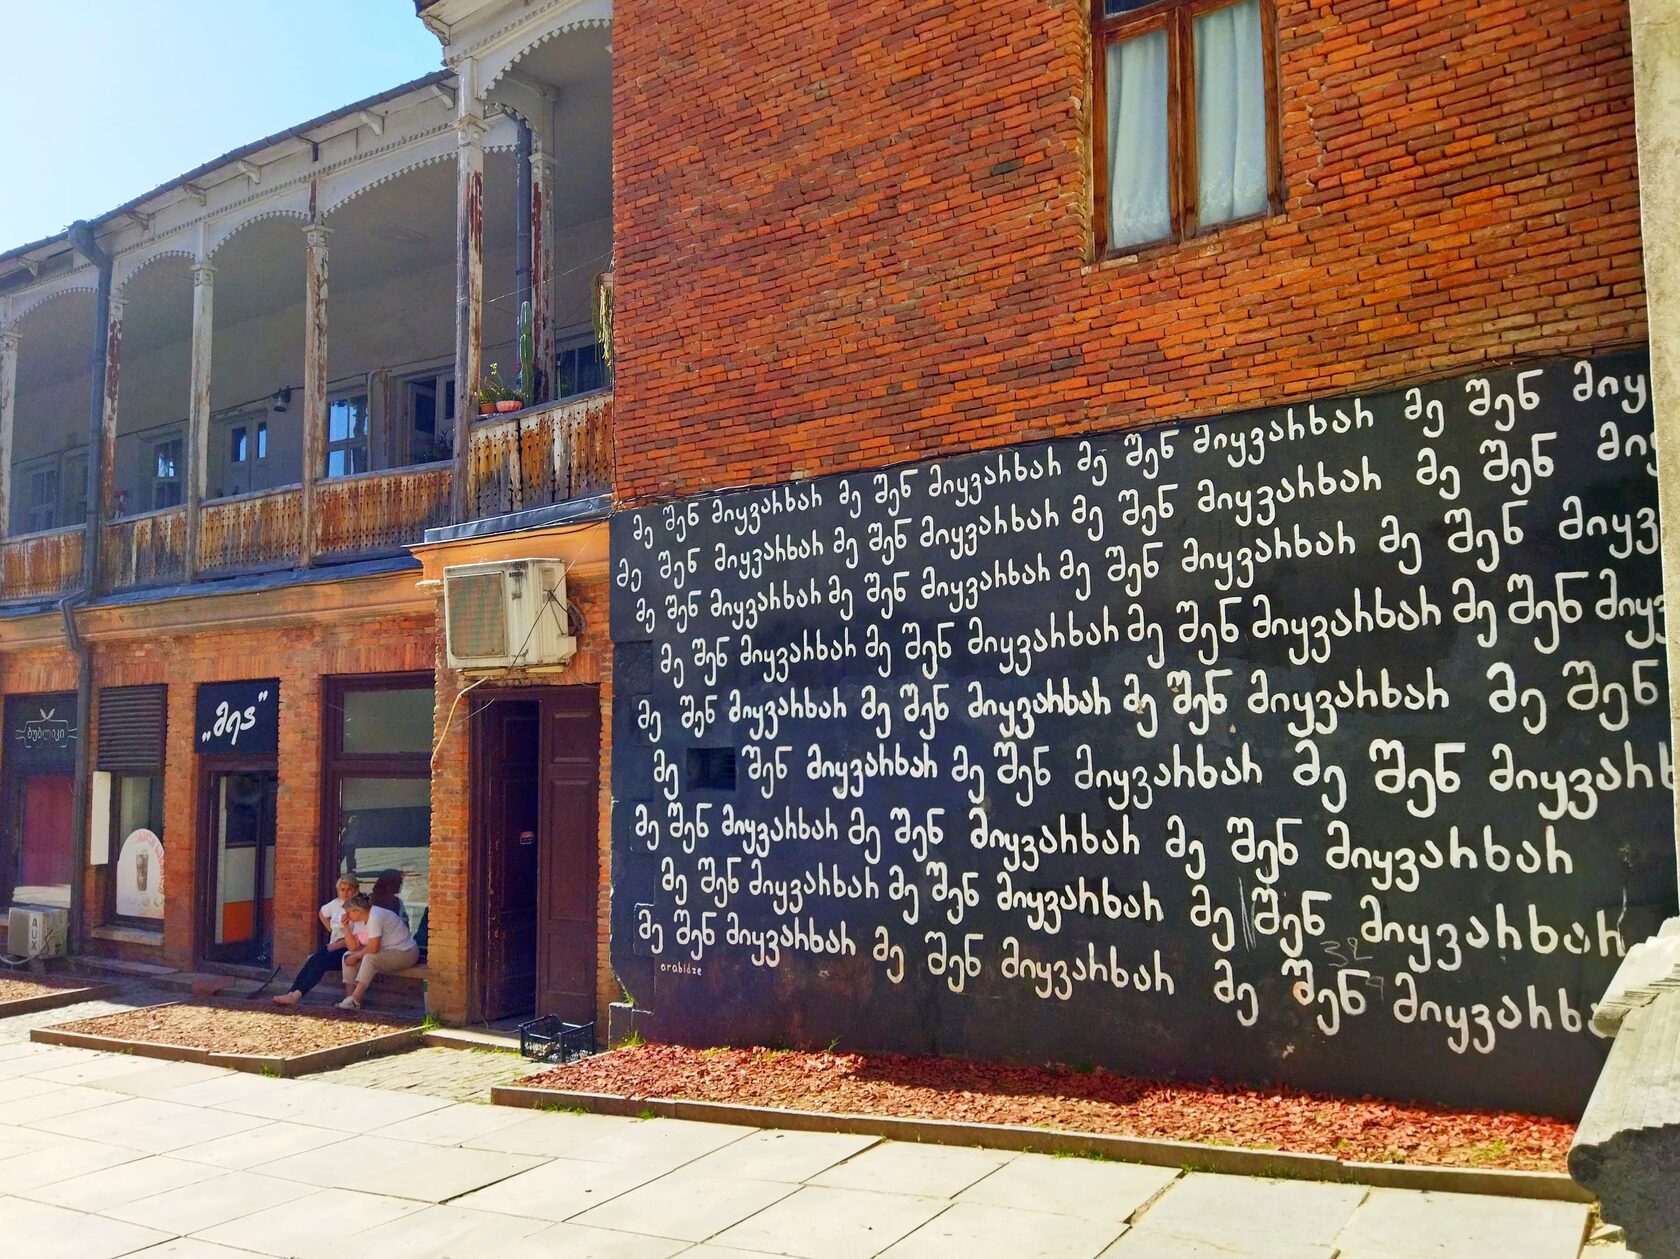 მე შენ მიყვარხარ მე შენ მიყვარხარ მე შენ მიყვარხარ მე შენ მიყ
მე შენ მიყვარხარ მე შენ მიყვარხარ მე შენ მიყვარხარ მე შენ მიყ
მე შენ მიყვარხარ მე შენ მიყვარხარ მე შენ მიყვარხარ მე შენ მიყვ
მე შენ მიყვარხარ მე შენ მიყვარხარ მე შენ მიყვარხარ მე შენ მიყვ
მე შენ მიყვარხარ მე შენ მიყვარხარ მე შენ მიყვარხარ მე შენ
მე შენ მიყვარხარ მე შენ მიყვარხარ მე შენ მიყვარხ
მე შენ მიყვარხარ მე შენ მიყვარხარ მე შენ მიყვარხარ
მე შენ მიყვარხარ მე შენ მიყვარხარ მე შენ მიყვარხარ
მე შენ მიყვარხარ მე შენ მიყვარხარ მე შენ მიყვარხა
arabidze
ბუბლიკი
AUX